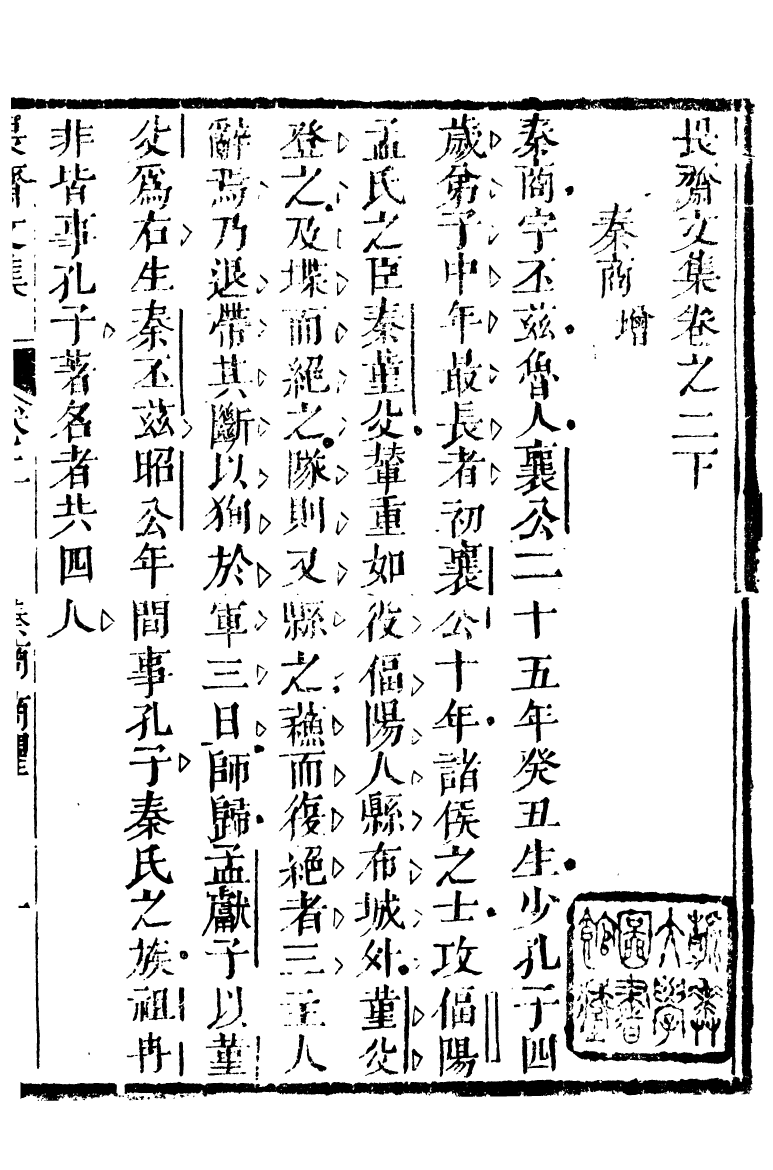 畏齋文集卷之二下
秦商 增
秦商字丕茲魯人襄公二十五年癸丑生少孔子四
歲弟子中年最長者初襄公十年諸侯之士攻偪陽
孟氏之臣秦堇父輦重如役偪陽人縣布城外堇父
登之及堞而絕之隊則又縣之蘓而復絕者三主人
辭焉乃退帶其斷以狥於軍三日師歸孟獻子以堇
父爲右生秦丕茲昭公年間事孔子秦氏之族祖冉
非皆事孔子著名者共四人
畏齋文集
秦商 商瞿
一